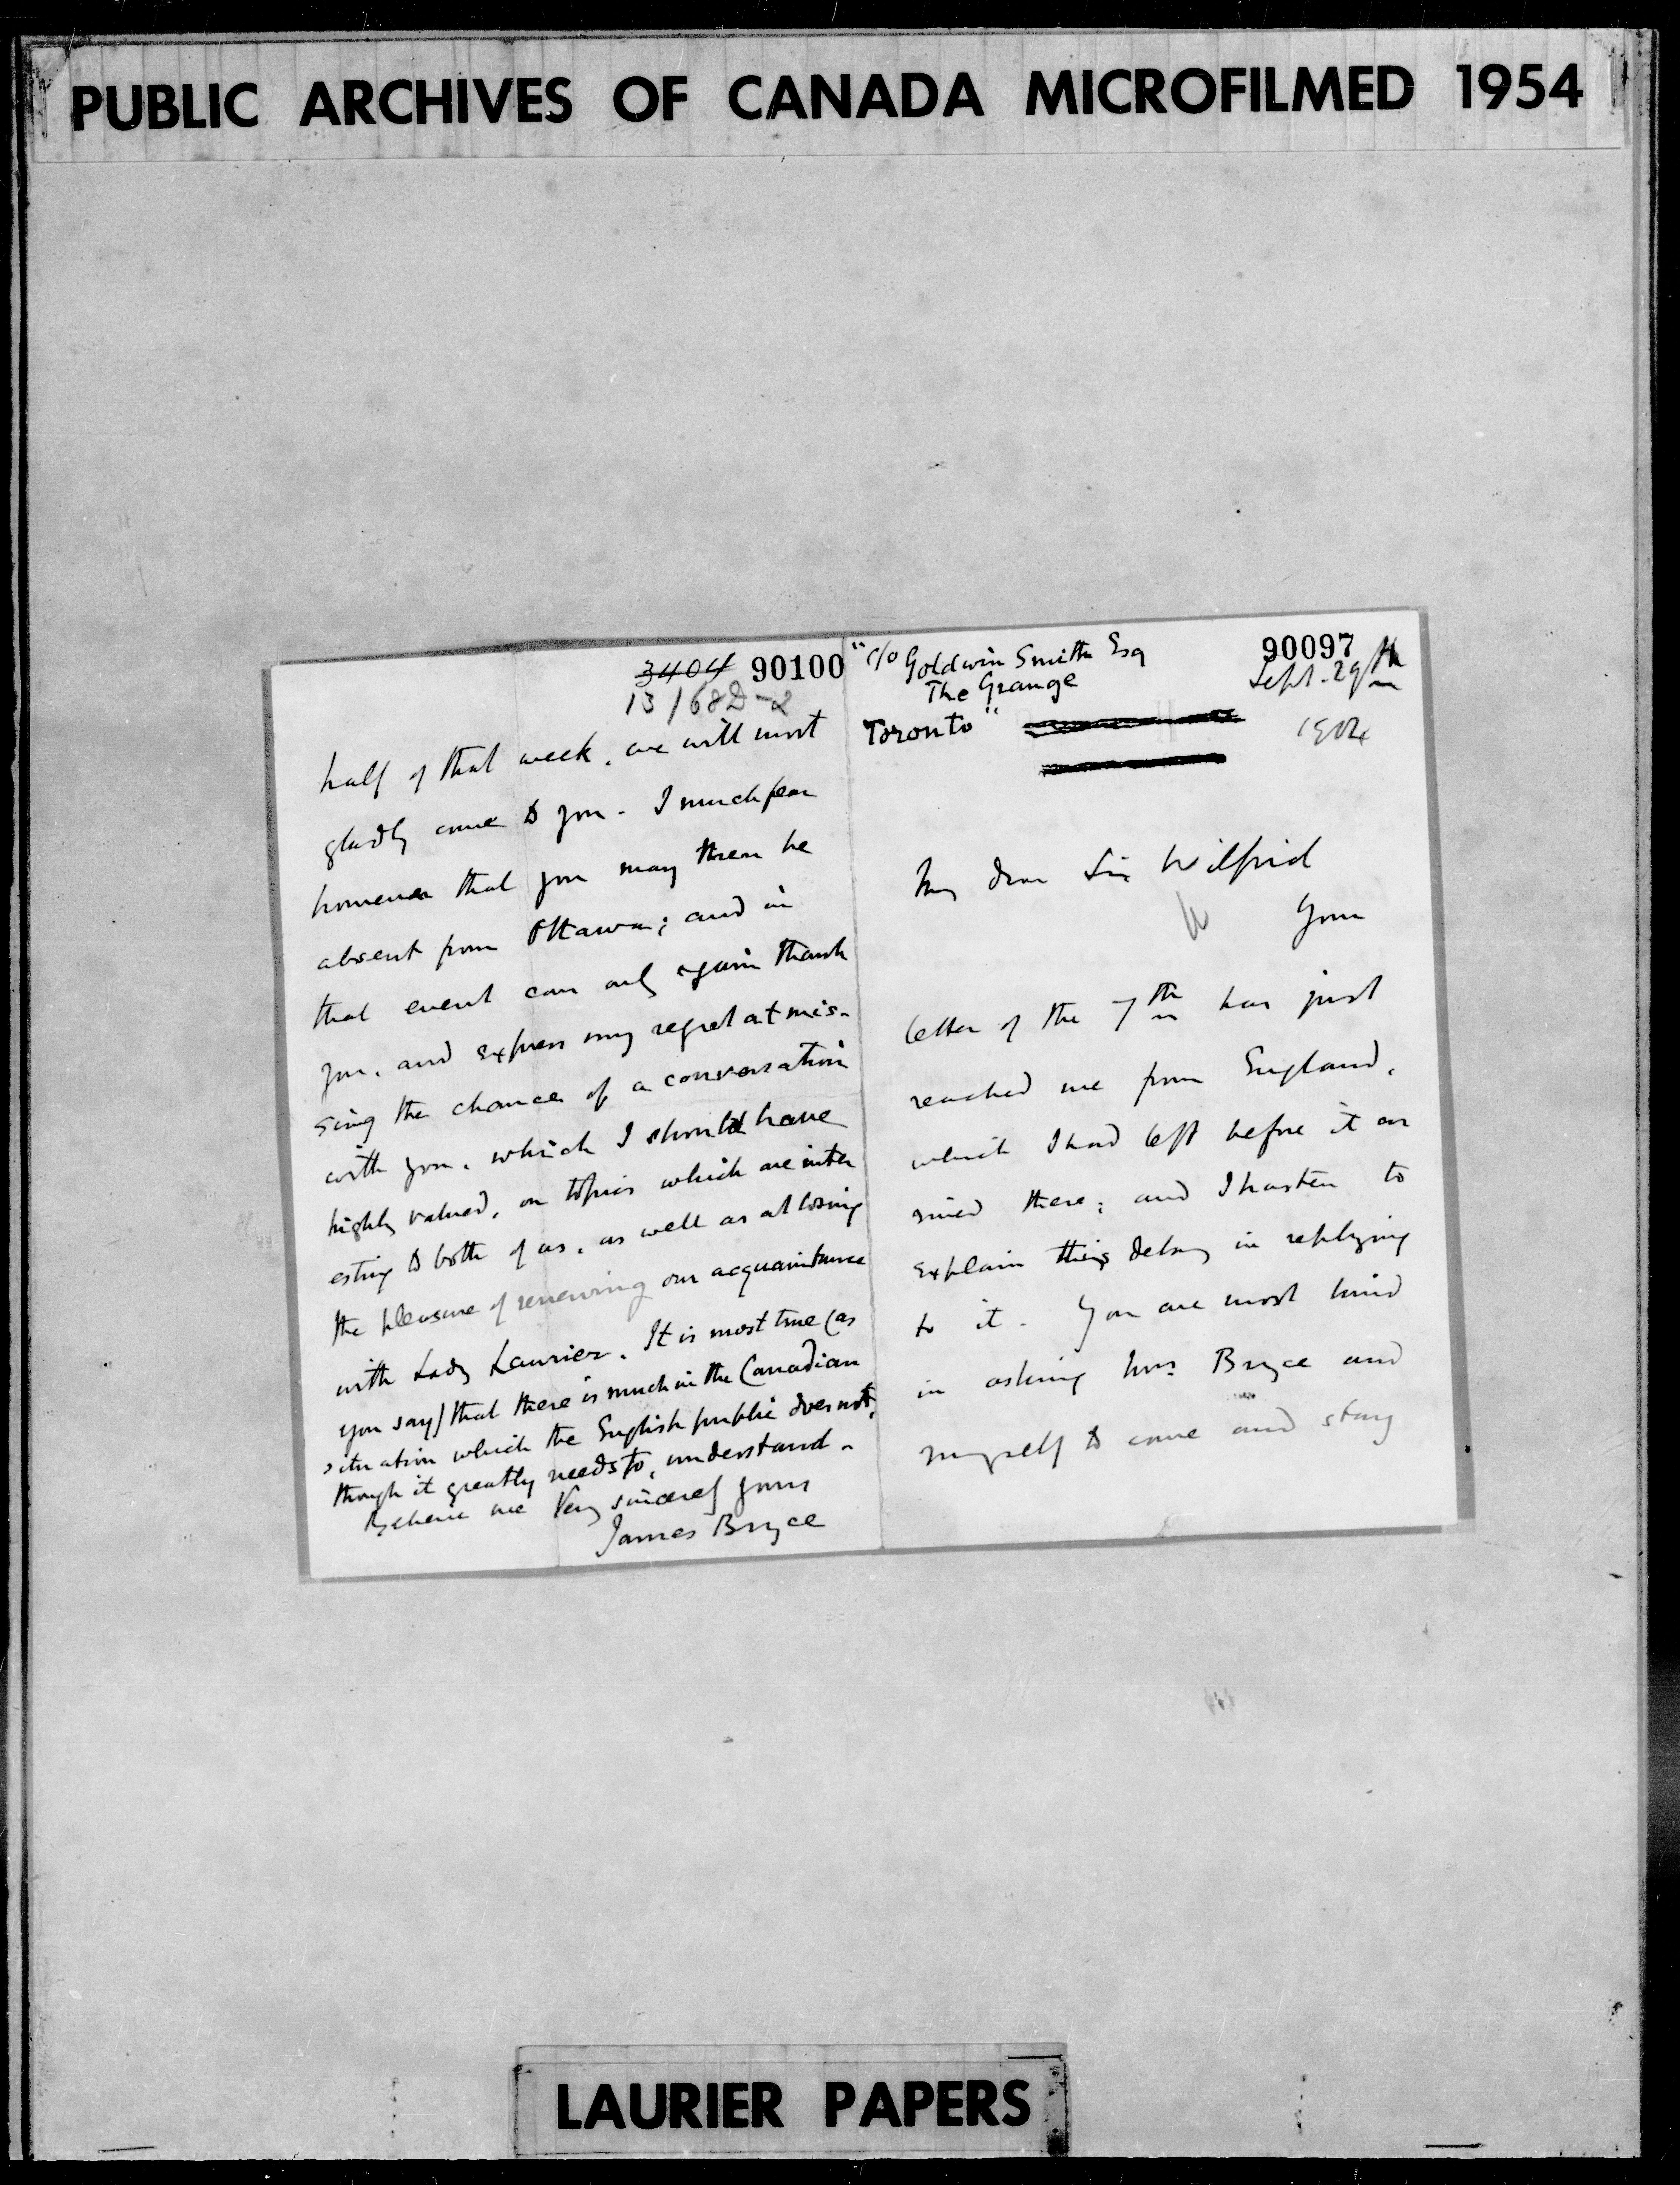 PUBLIC ARCHIVES OF CANADA MICROFILMED 1954
3404 90100
13168D-2
half of that week, we will most
gladly come to you. I much fear
however that you may then be
absent from Ottawa; and in
that event can only again thank
you, and express my regret at mis-
sing the chance of a conversation
with you, which I should have
highly valued, on topics which are inter
esting to both of us, as well as at losing
the pleasure of renewing our acquaintance
with Lady Laurier. It is most true (as
you say) that there is much in the Canadian
situation which the English public does not,
though it greatly needs to, understand.
Believe me Very sincerely yours
James Bryce
"c/o Goldwin Smith Esq
The Grange
Toronto"
90097
Sept. 29th
1904
My dear Sir Wilfrid
Your
letter of the 7th has just
reached me from England,
which I had left before it ar
rived there; and I hasten to
explain this delay in replying
to it. You are most kind
in asking Mrs. Bryce and
myself to come and stay
LAURIER PAPERS